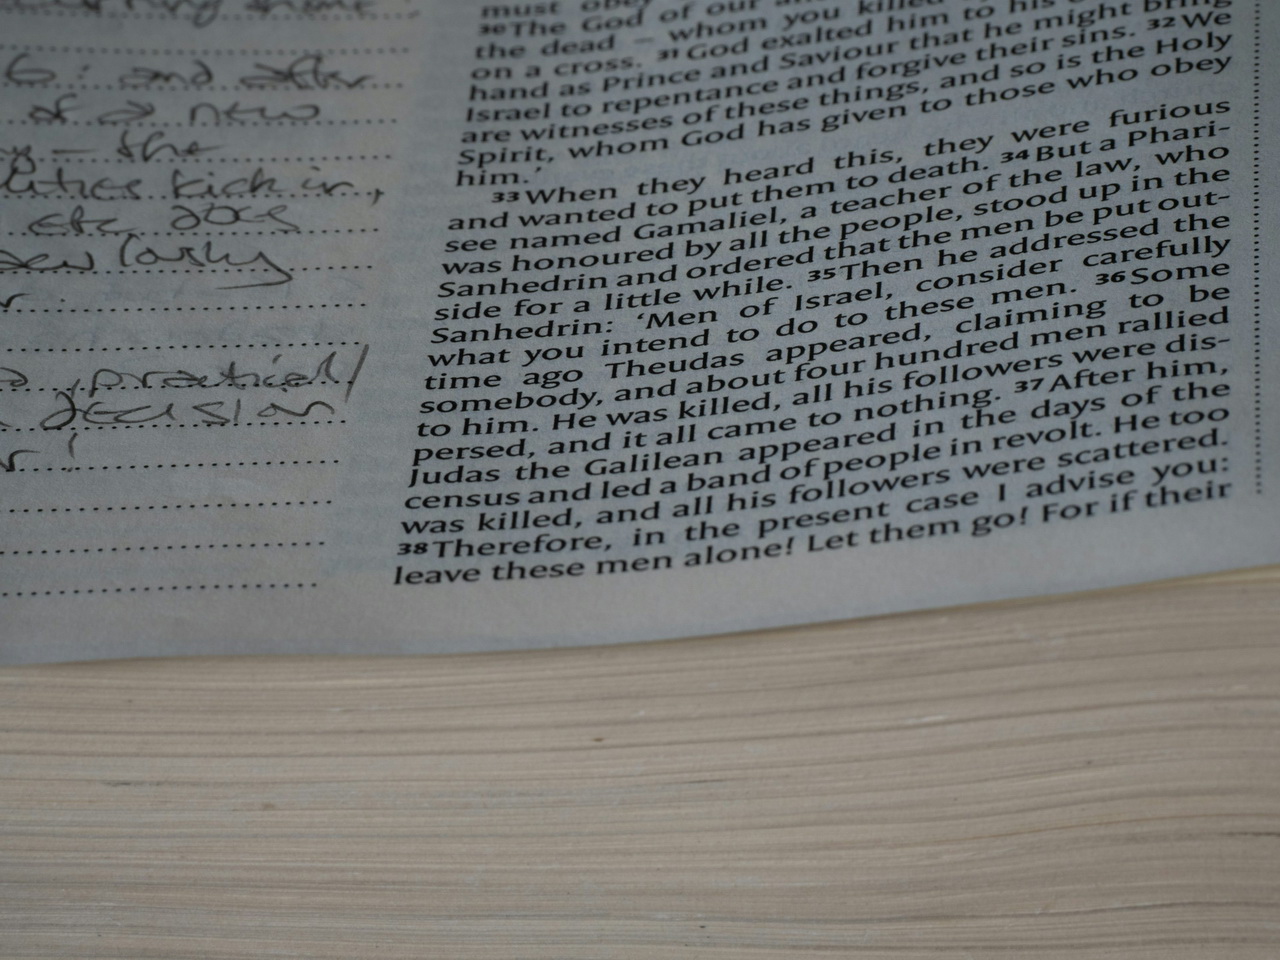 6: and after
of a new
– the
kick in,
etc does
practical/
decision
must
30 The God of our
the dead – whom you killed
on a cross. 31 God exalted him to his
hand as Prince and Saviour that he might bring
Israel to repentance and forgive their sins. 32 We
are witnesses of these things, and so is the Holy
Spirit, whom God has given to those who obey
him.'
33 When they heard this, they were furious
and wanted to put them to death. 34 But a Phari-
see named Gamaliel, a teacher of the law, who
was honoured by all the people, stood up in the
Sanhedrin and ordered that the men be put out-
side for a little while. 35 Then he addressed the
Sanhedrin: 'Men of Israel, consider carefully
what you intend to do to these men. 36 Some
time ago Theudas appeared, claiming to be
somebody, and about four hundred men rallied
to him. He was killed, all his followers were dis-
persed, and it all came to nothing. 37 After him,
Judas the Galilean appeared in the days of the
census and led a band of people in revolt. He too
was killed, and all his followers were scattered.
38 Therefore, in the present case I advise you:
leave these men alone! Let them go! For if their